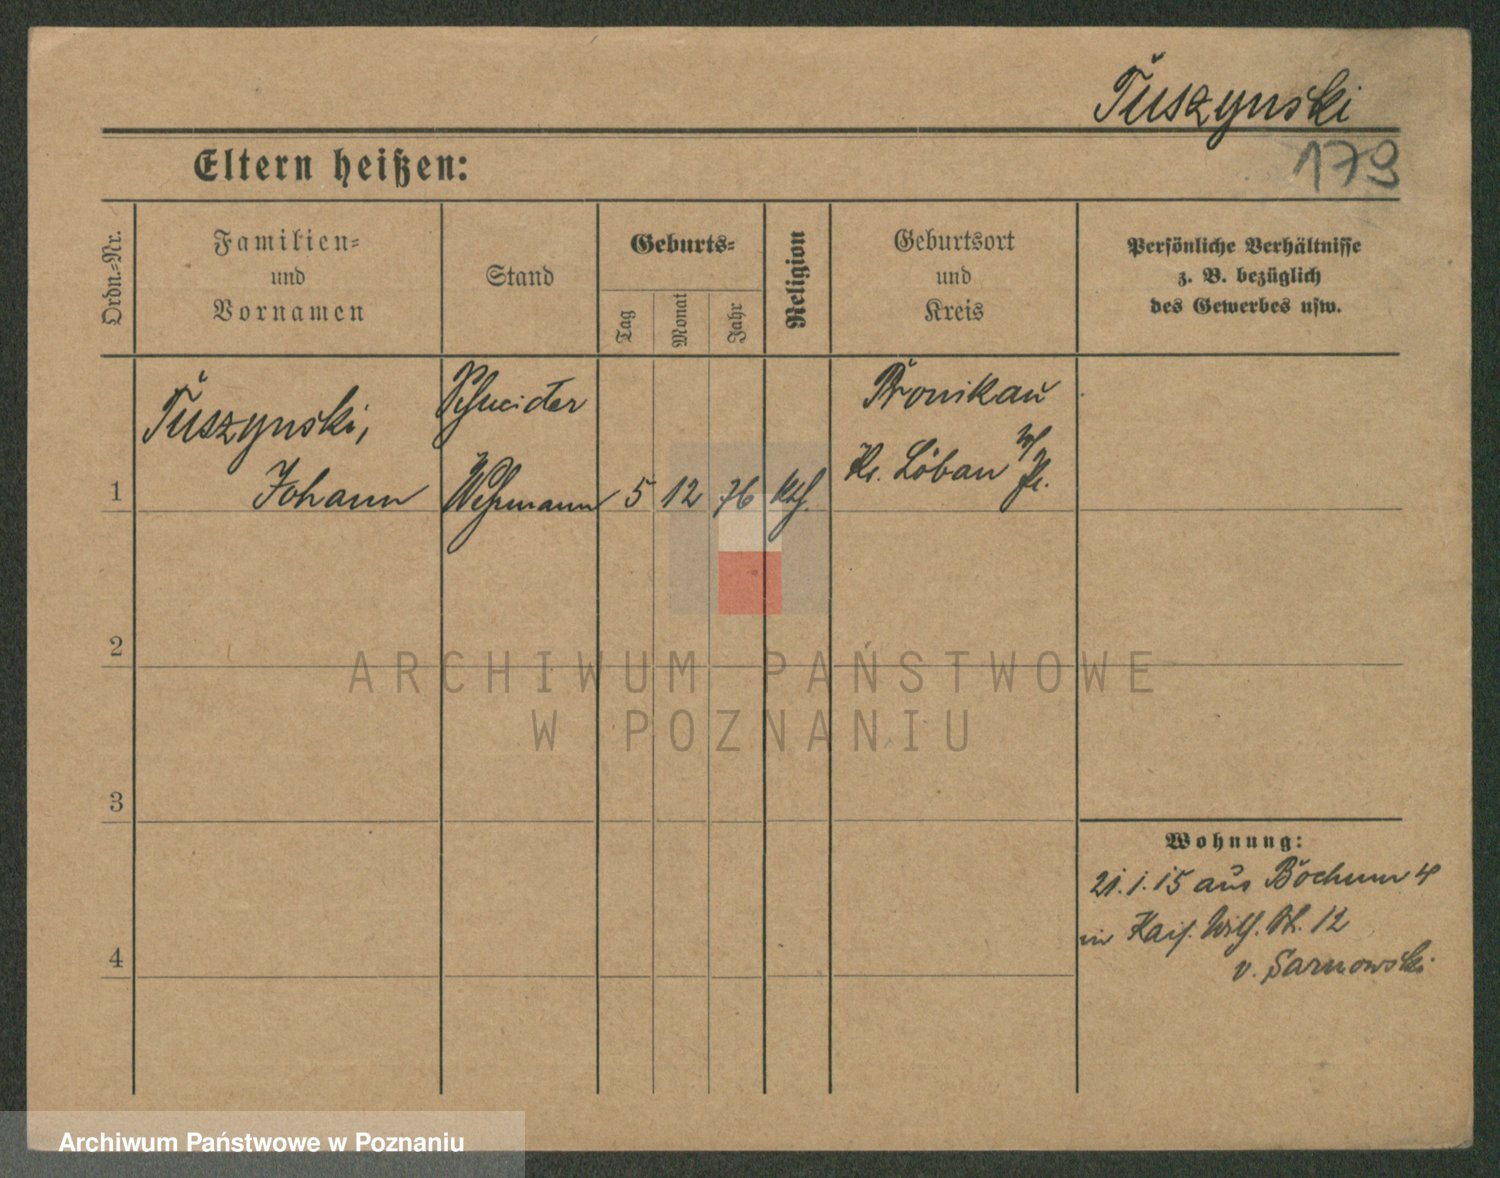 Tuszynski
179
Eltern heißen:
Ordn.-Nr.
Familien-
und
Vornamen
Stand
Geburts-
Tag
Monat
Jahr
Religion
Geburtsort
und
Kreis
Persönliche Verhältnisse
z. B. bezüglich
des Gewerbes usw.
1
Tuszynski,
Johann
Schneider
Wehrmann
5
12
76
kth.
Bronikau
Kr. Löbau
2
3
4
Wohnung:
21.1.15 aus Bochum 4
in Kais. Wilh. Str. 12
v. Sarnowski
ARCHIWUM PAŃSTWOWE
W POZNANIU
Archiwum Państwowe w Poznaniu